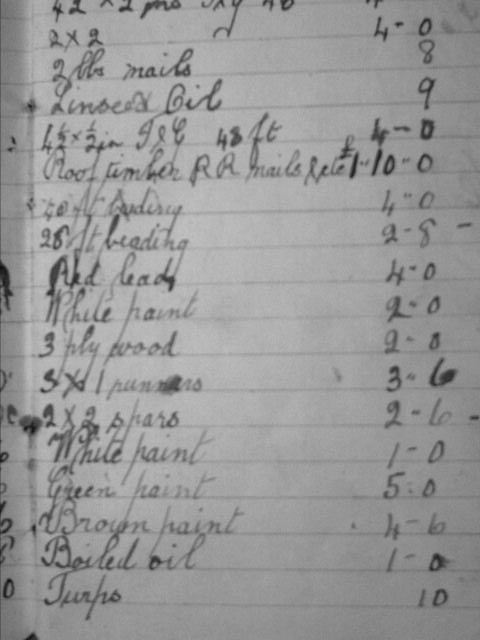 2 x 2 4-0
2 lbs nails 8
Linseed Oil 9
4½ x ½ in T & G 48 ft 4-0
Roof timber R R nails & etc £1-10-0
ft beading 4-0
28 ft beading 2-8
Red lead 4-0
White paint 2-0
3 ply wood 2-0
3 x 1 runners 3-6
2 x 2 spars 2-6
White paint 1-0
Green paint 5-0
Brown paint 4-6
Boiled oil 1-0
Turps 10